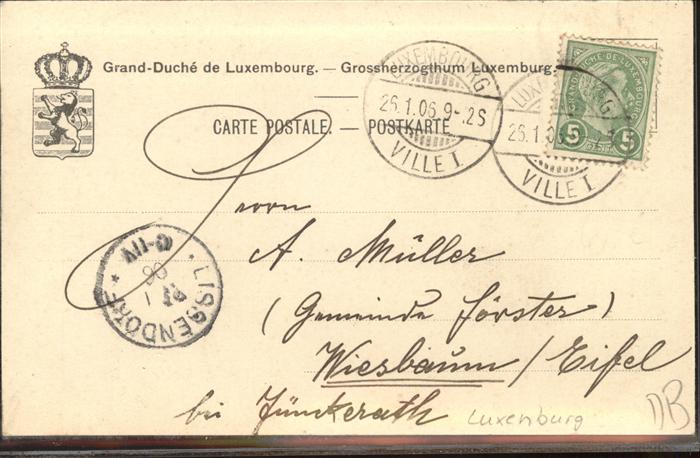 Grand-Duché de Luxembourg. — Grossherzogthum Luxemburg.
CARTE POSTALE. — POSTKARTE
LUXEMBOURG
26.1.06.9-12S
VILLE I.
LUX G
26.1.0
VILLE I.
GRAND DUCHÉ DE LUXEMBOURG
5 5
Herrn
A. Müller
(Gemeinde Förster)
Wiesbaum / Eifel
bei Jünkerath
LISSENDORF
Luxenburg
DB